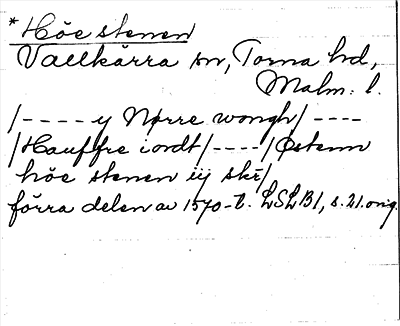 *Höe stenen
Vallkärra sn, Torna hd,
Malm. l.
/---- y Nørre wongh/ ----
/Hauffre iordt/----/Østenn
höe stenen iij skr/
förra delen av 1570-t. LSLB1, s. 21. orig.